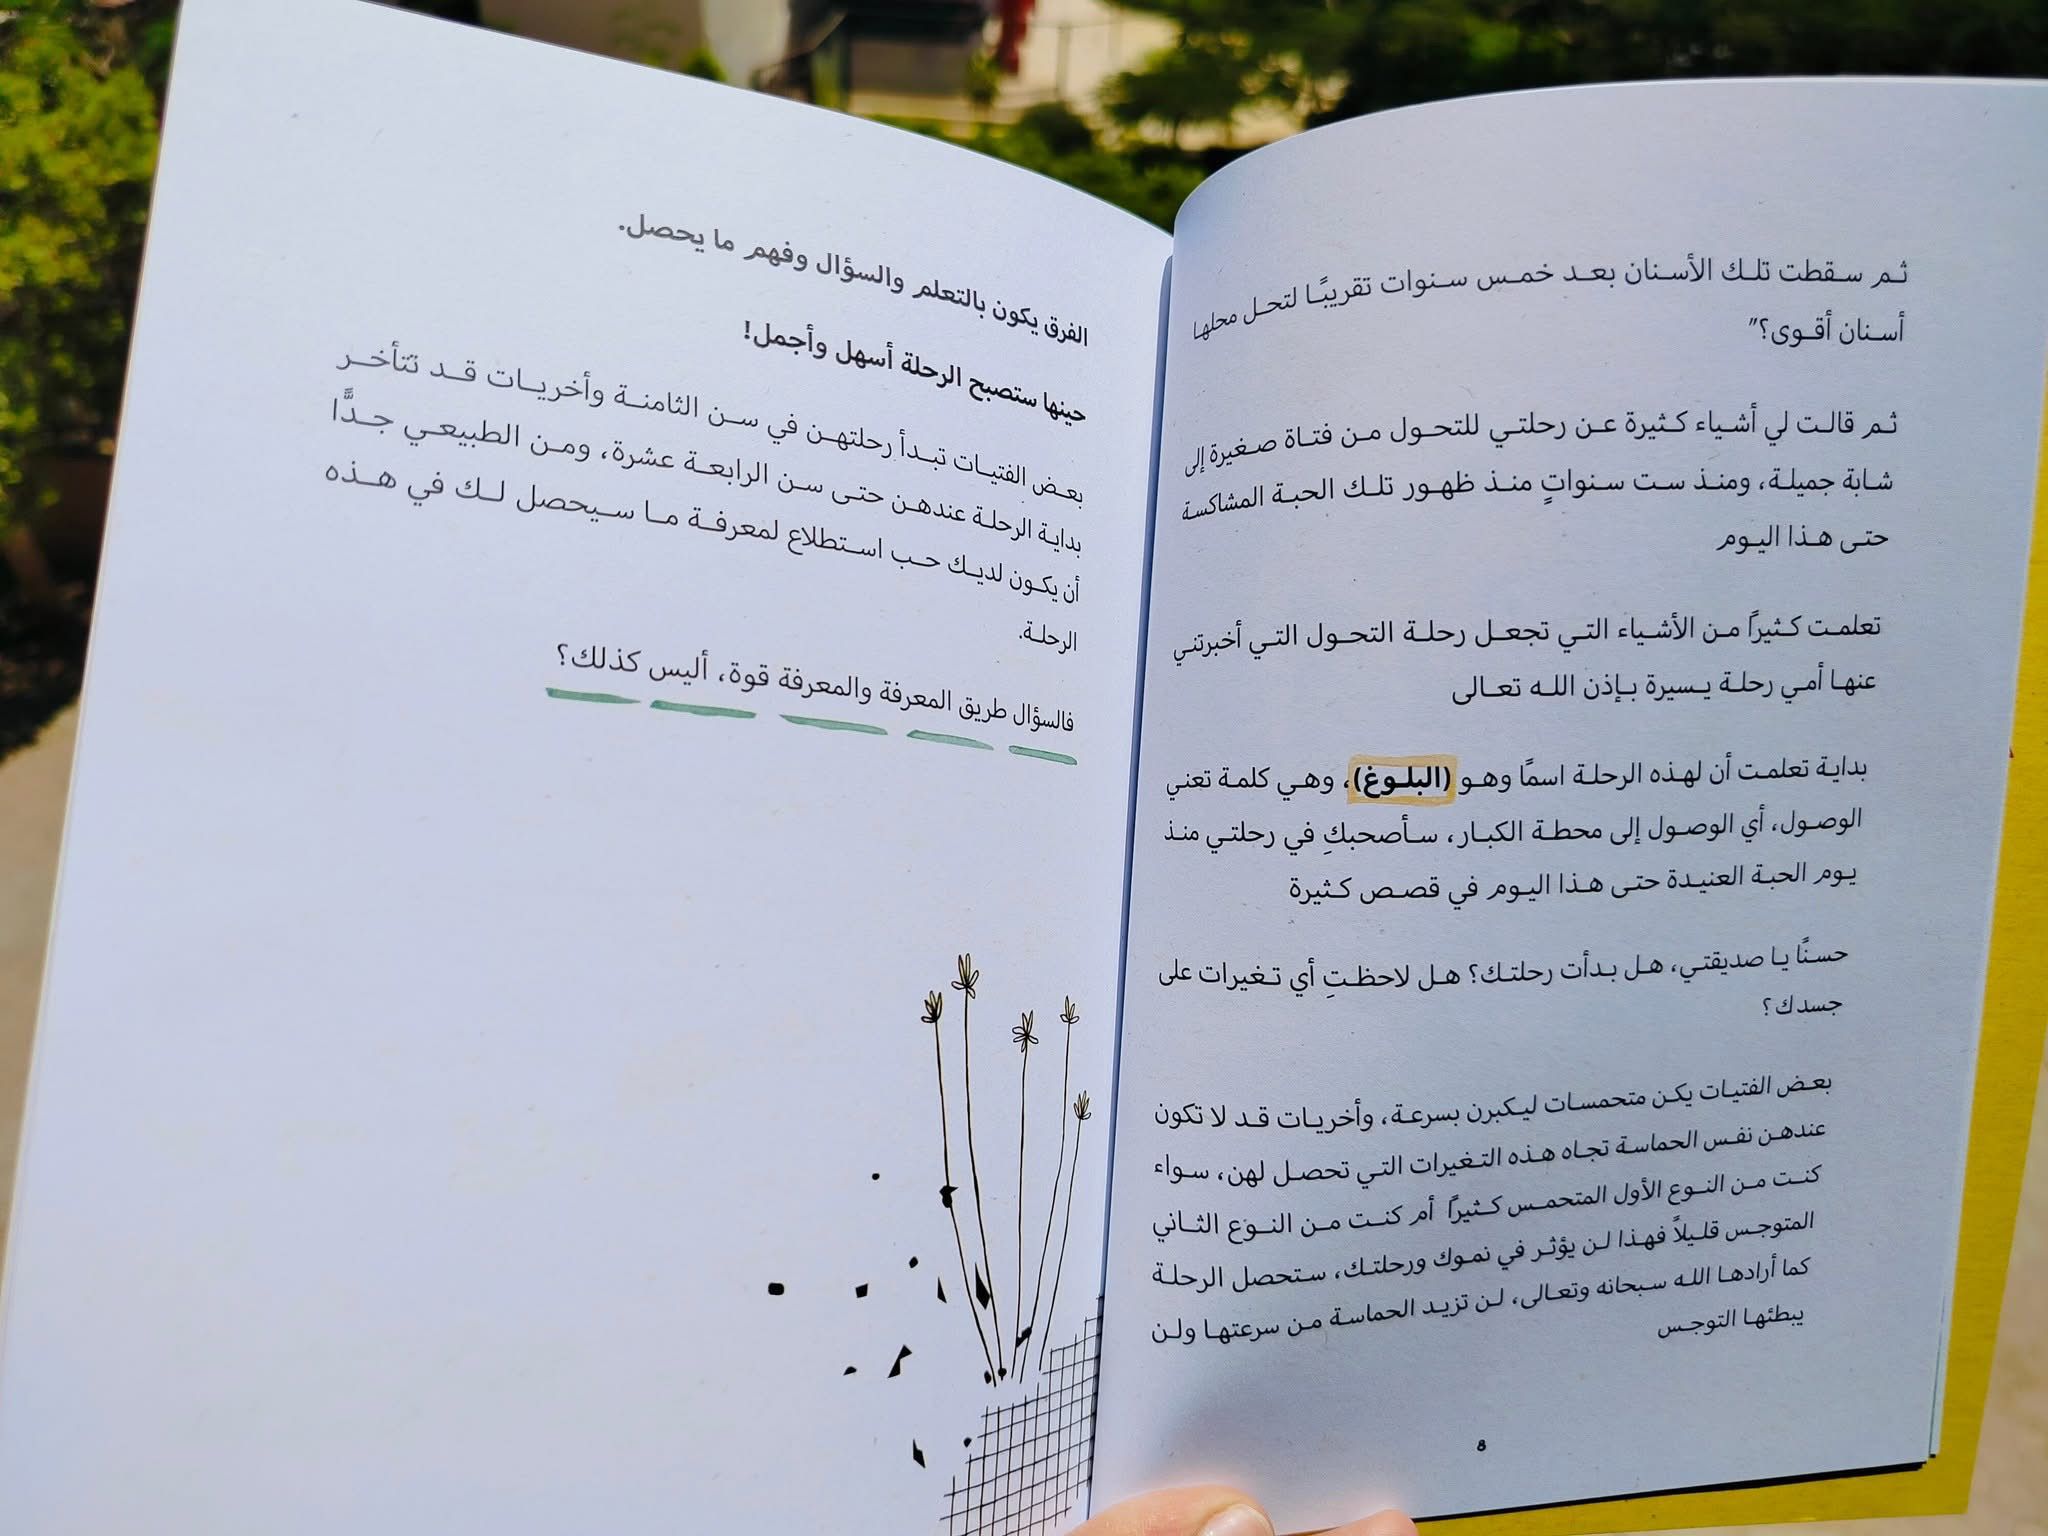 ثم سقطت تلك الأسنان بعد خمس سنوات تقريبًا لتحل محلها
أسنان أقوى؟"
ثم قالت لي أشياء كثيرة عن رحلتي للتحول من فتاة صغيرة إلى
شابة جميلة، ومنذ ست سنواتٍ منذ ظهور تلك الحبة المشاكسة
حتى هذا اليوم
تعلمت كثيرًا من الأشياء التي تجعل رحلة التحول التي أخبرتني
عنها أمي رحلة يسيرة بإذن الله تعالى
بداية تعلمت أن لهذه الرحلة اسمًا وهو (البلوغ)، وهي كلمة تعني
الوصول، أي الوصول إلى محطة الكبار، سأصحبكِ في رحلتي منذ
يوم الحبة العنيدة حتى هذا اليوم في قصص كثيرة
حسنًا يا صديقتي، هل بدأت رحلتك؟ هل لاحظتِ أي تغيرات على
جسدك؟
بعض الفتيات يكن متحمسات ليكبرن بسرعة، وأخريات قد لا تكون
عندهن نفس الحماسة تجاه هذه التغيرات التي تحصل لهن، سواء
كنت من النوع الأول المتحمس كثيرًا أم كنت من النوع الثاني
المتوجس قليلاً فهذا لن يؤثر في نموك ورحلتك، ستحصل الرحلة
كما أرادها الله سبحانه وتعالى، لن تزيد الحماسة من سرعتها ولن
يبطئها التوجس
8
الفرق يكون بالتعلم والسؤال وفهم ما يحصل.
حينها ستصبح الرحلة أسهل وأجمل!
بعض الفتيات تبدأ رحلتهن في سن الثامنة وأخريات قد تتأخر
بداية الرحلة عندهن حتى سن الرابعة عشرة، ومن الطبيعي جدًّا
أن يكون لديك حب استطلاع لمعرفة ما سيحصل لك في هذه
الرحلة.
فالسؤال طريق المعرفة والمعرفة قوة، أليس كذلك؟